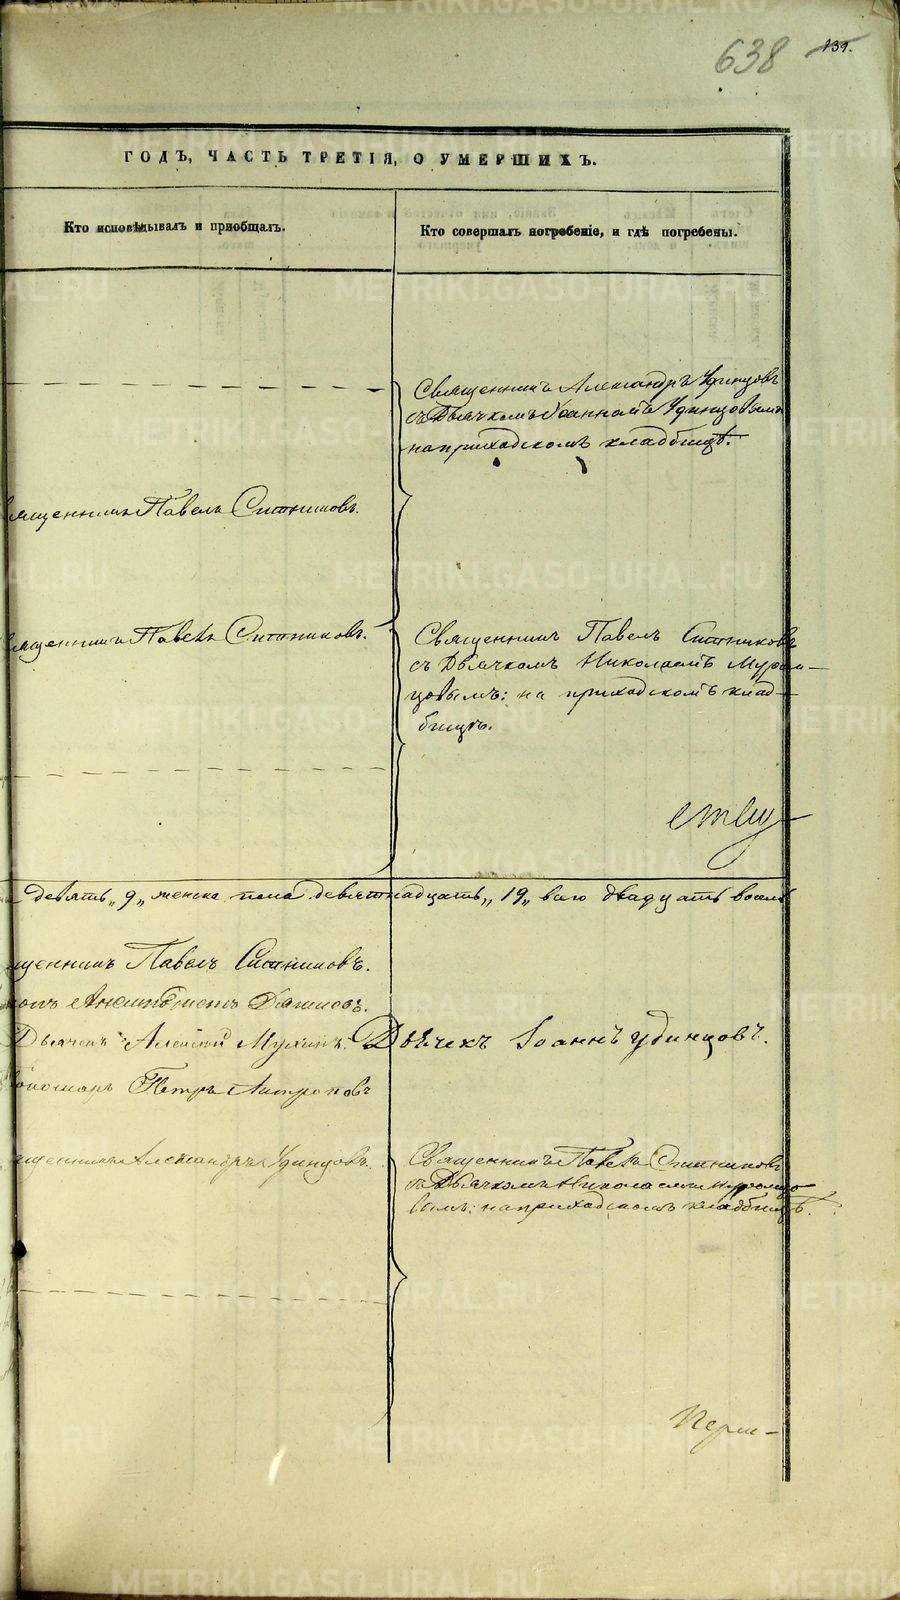 638 139.
ГОДЪ, ЧАСТЬ ТРЕТІЯ, О УМЕРШИХЪ.
Кто исповѣдывалъ и приобщалъ.
Кто совершалъ погребеніе, и гдѣ погребены.
Священникъ Александръ Удинцовъ
съ Дьячкомъ Іоанномъ Удинцовымъ
на приходскомъ кладбищѣ.
священникъ Павелъ Ситниковъ.
священникъ Павелъ Ситниковъ.
Священникъ Павелъ Ситниковъ
съ Дьячкомъ Николаемъ Муром-
цовымъ: на приходскомъ клад-
бищѣ.
девять „9„ женска пола девятнадцать „19„ всего двадцать восемь
щенникъ Павелъ Ситниковъ.
Дьячекъ Алексѣй Мухинъ.
Дьячекъ Іоаннъ Удинцовъ.
Петръ
щенникъ Александръ Удинцовъ.
Священникъ Павелъ Ситниковъ
съ Дьячкомъ Николаемъ Муромцо
вымъ: на приходскомъ кладбищѣ.
METRIKI.GASO-URAL.RU